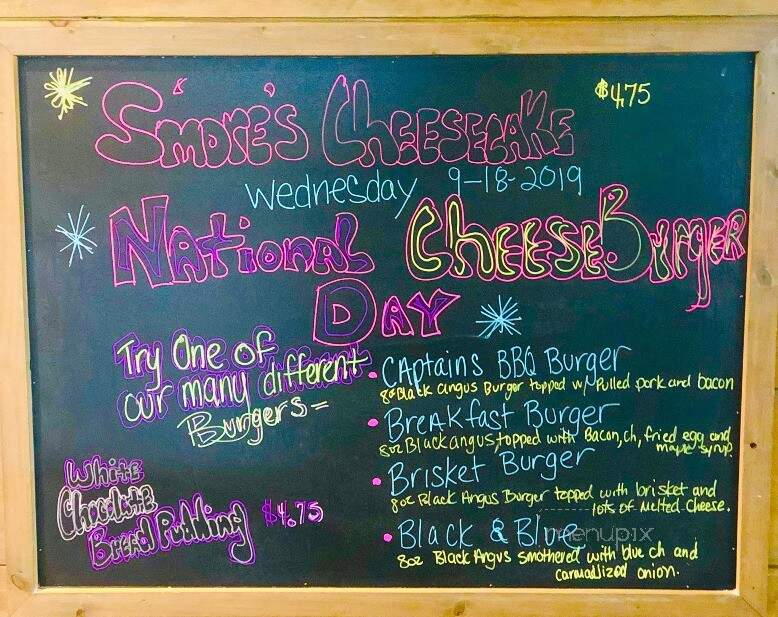 S'more's Cheesecake $4.75
Wednesday 9-18-2019
National CheeseBurger
Day
Try One of
our many different
Burgers=
• Captains BBQ Burger
8oz Black angus Burger topped w/ Pulled pork and bacon
• Breakfast Burger
8oz Black angus, topped with Bacon, ch, fried egg and
maple syrup.
• Brisket Burger
8oz Black Angus Burger topped with brisket and
lots of Melted Cheese.
• Black & Blue
8oz Black Angus smothered with blue ch and
carmallized onion.
White
Chocolate
Bread Pudding $4.75
menupix